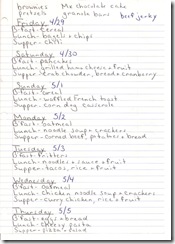 brownies Mx chocolate cake
pretzels granola bars beef jerky
Friday 4/29
B-fast- Cereal
Lunch- bagels + chips
Supper- chili
Saturday 4/30
B-fast- pancakes
Lunch- grilled ham + cheese + fruit
Supper- chowder, bread + cranberry
Sunday 5/1
B-fast- Cereal
Lunch- waffled French toast
Supper- corn dog casserole
Monday 5/2
B-fast- Oatmeal
Lunch- noodle soup + crackers
Supper- Corned beef, potatoes + bread
Tuesday 5/3
B-fast- fritters
Lunch- noodles + sauce + fruit
Supper- tacos, rice + fruit
Wednesday 5/4
B-fast- Oatmeal
Lunch- Chicken noodle soup + Crackers
Supper- Curry chicken, rice + fruit
Thursday 5/5
B-fast- eggs + bread
Lunch- Cheesy pasta
Supper-